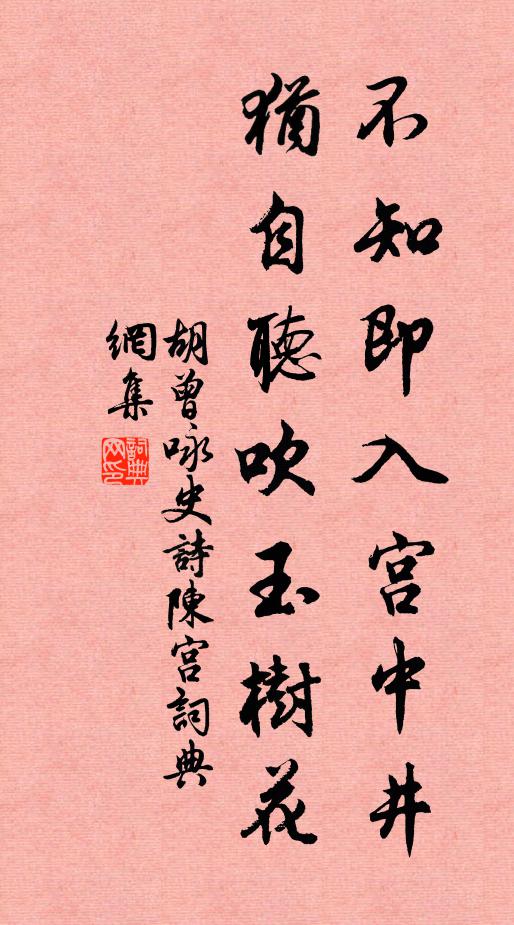 不知即入宫中井
猶自聽吹玉樹花
胡曾咏史詩陳宫詞典
網集
詞典网印